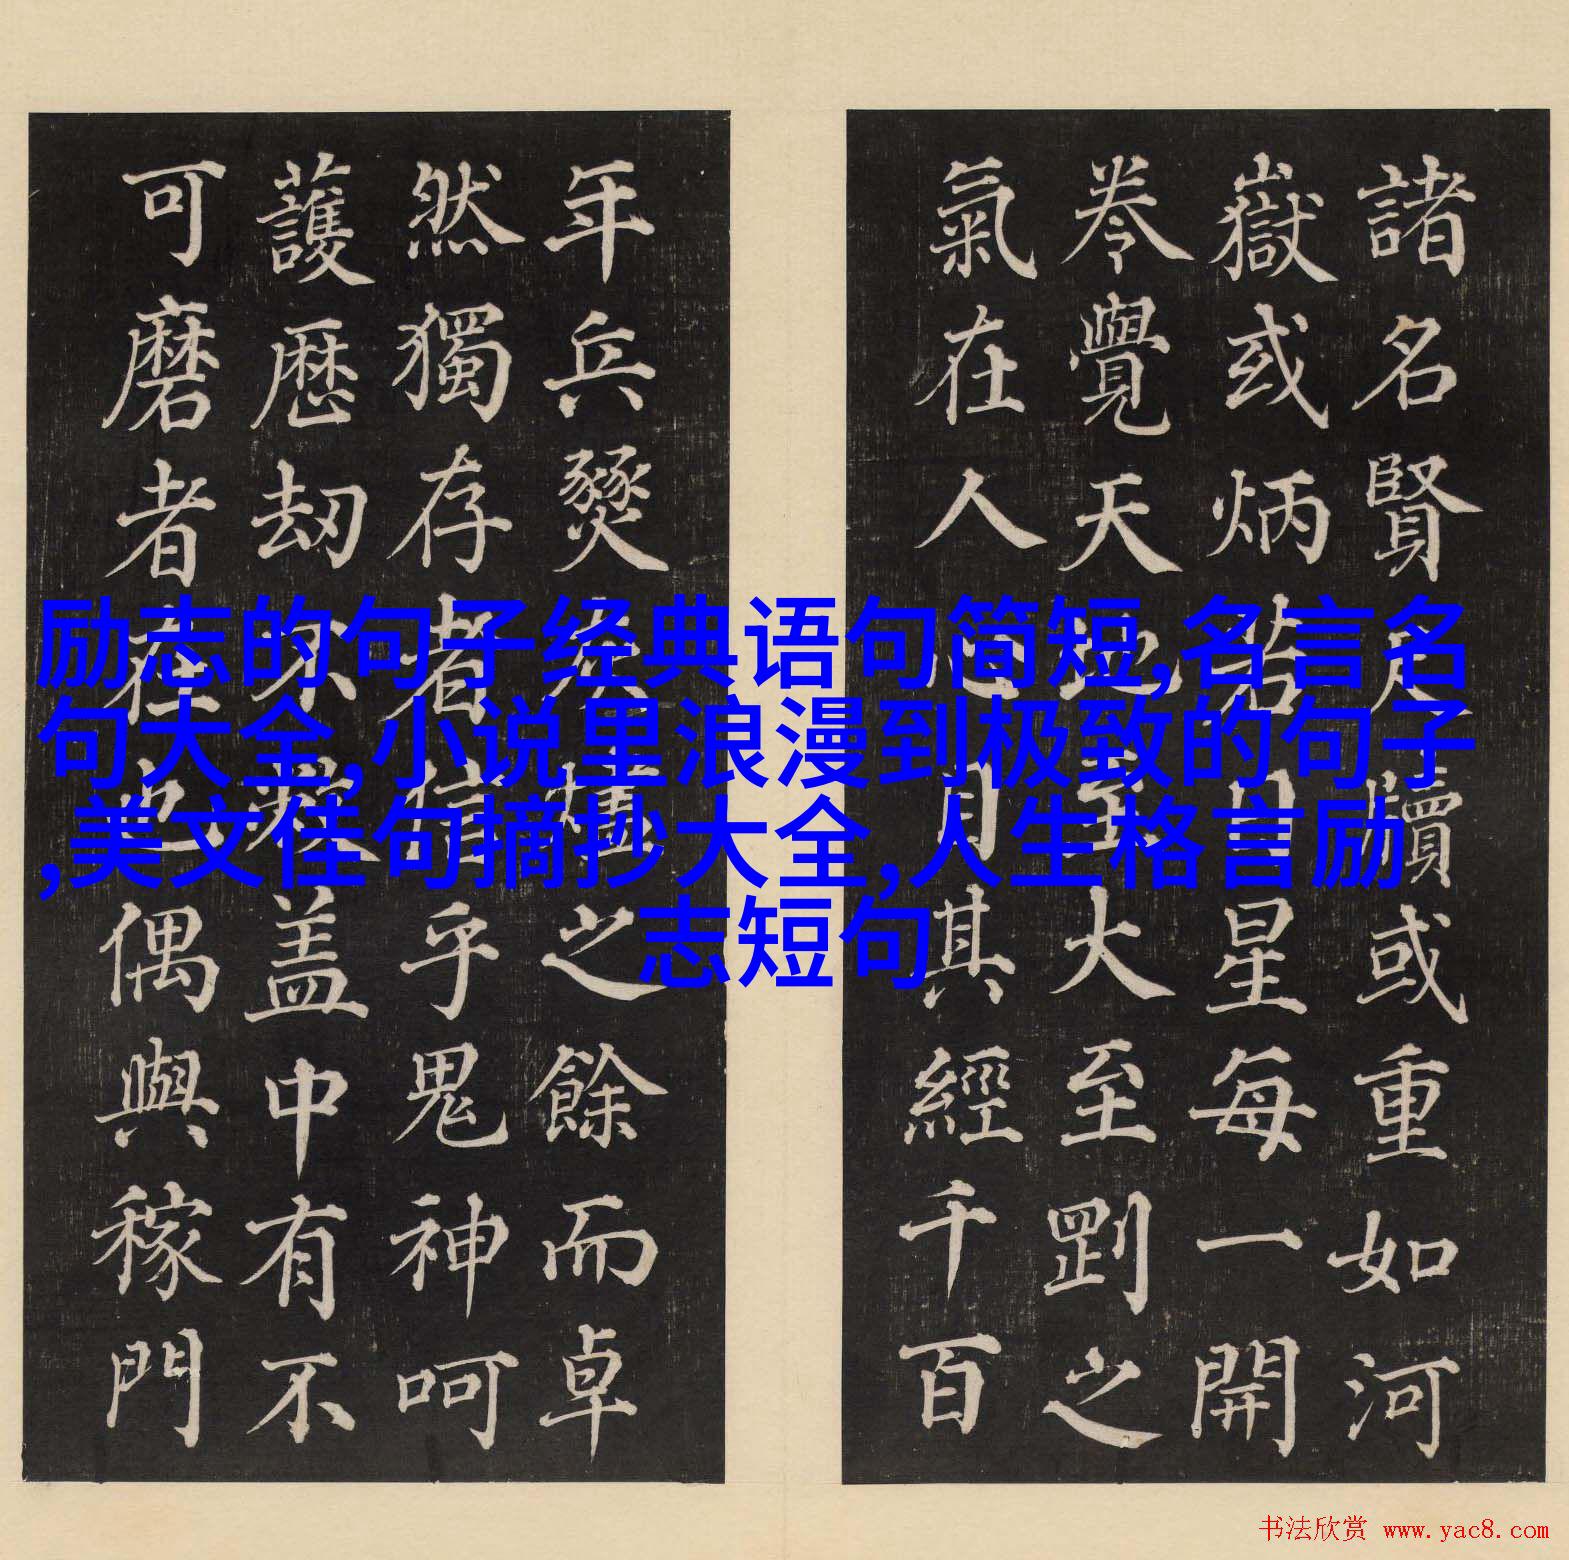 励志的句子经典语句简短,名言名
句大全,小说里浪漫到极致的句子
,美文佳句摘抄大全,人生格言励
志短句
諸名賢尺牘或重如河
嶽或炳若日星每一開
卷覺天地至大至剛之
氣在人心目其經千百
年兵燹燼之餘而卓
然獨存者信乎鬼神呵
護歷劫不蓋中有不
可磨者在也偶與稼門
书法欣赏 www.yac8.com